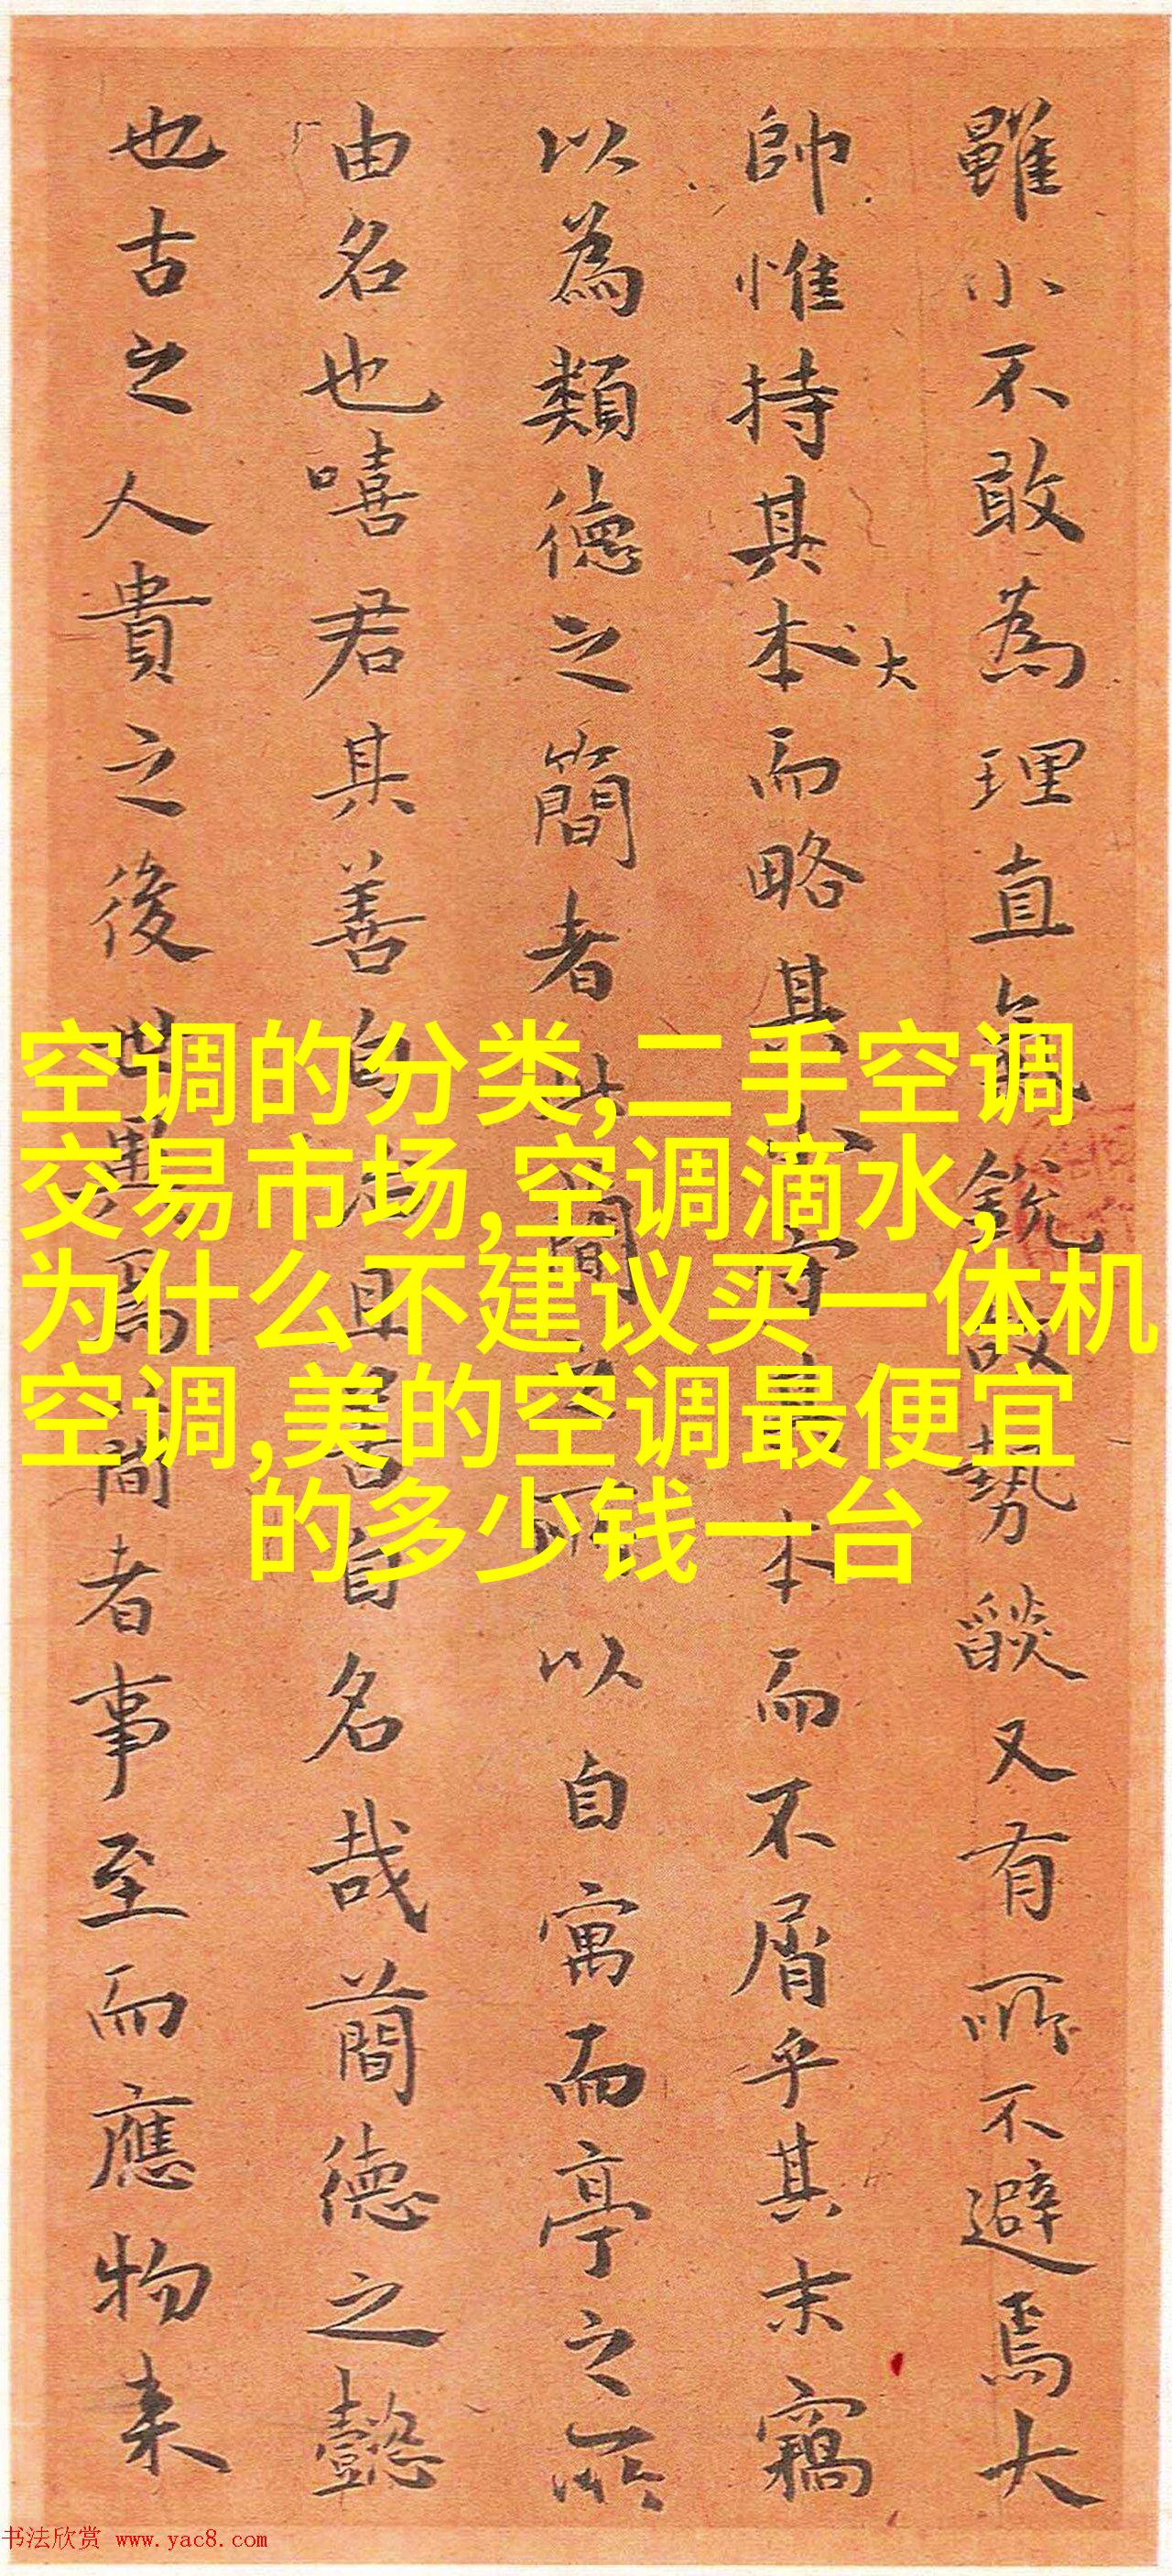 雖小不敢為理直氣銳故勢燄又有所不避焉大
帥惟持其本大而略其小守其本而不屑乎其末竊
以為類德之簡者
以自寓而亭之所
由名也嘻君其善自
居自名哉蕳德之懿
也古之人貴之後世
焉簡者事至而應物来
空调的分类,二手空调
交易市场,空调滴水,
为什么不建议买一体机
空调,美的空调最便宜
的多少钱一台
书法欣赏 www.yac8.com